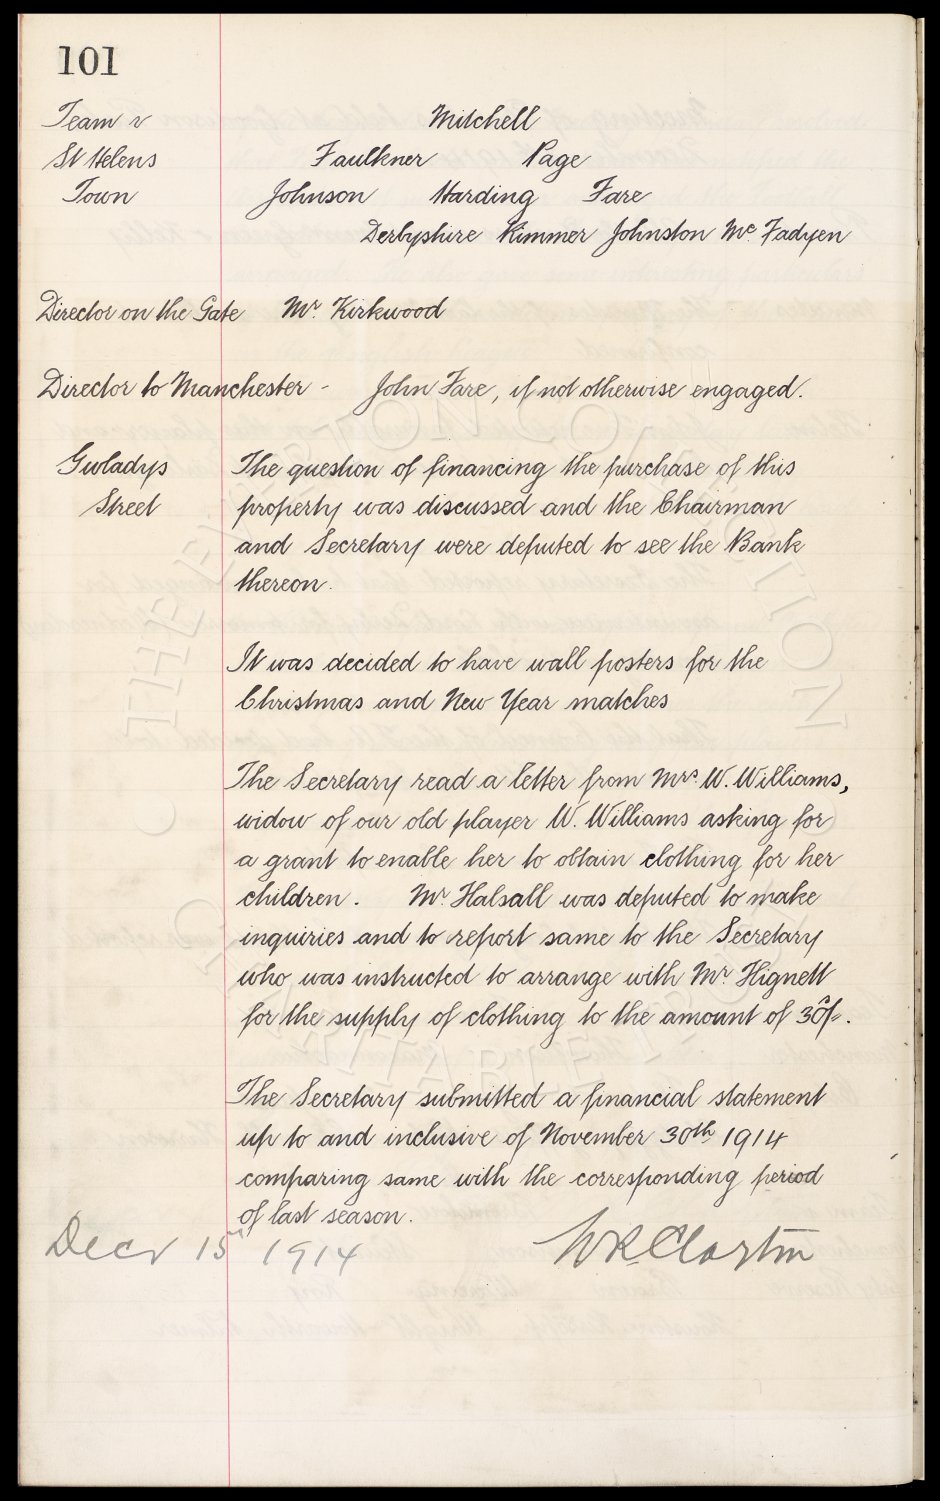 101
Team v Mitchell
St Helens Faulkner Page
Town Johnson Harding Fare
Derbyshire Rimmer Johnston Mc. Fadyen
Director on the Gate Mr. Kirkwood
Director to Manchester - John Fare, if not otherwise engaged.
Gwladys The question of financing the purchase of this
Street property was discussed and the Chairman
and Secretary were deputed to see the Bank
thereon.
It was decided to have wall posters for the
Christmas and New Year matches
The Secretary read a letter from Mrs. W. Williams,
widow of our old player W. Williams asking for
a grant to enable her to obtain clothing for her
children. Mr. Halsall was deputed to make
inquiries and to report same to the Secretary
who was instructed to arrange with Mr Hignett
for the supply of clothing to the amount of 30/-.
The Secretary submitted a financial statement
up to and inclusive of November 30th 1914
comparing same with the corresponding period
of last season.
Decr 15th 1914 W R Clayton
THE EVERTON COLLECTION
CHARITABLE TRUST